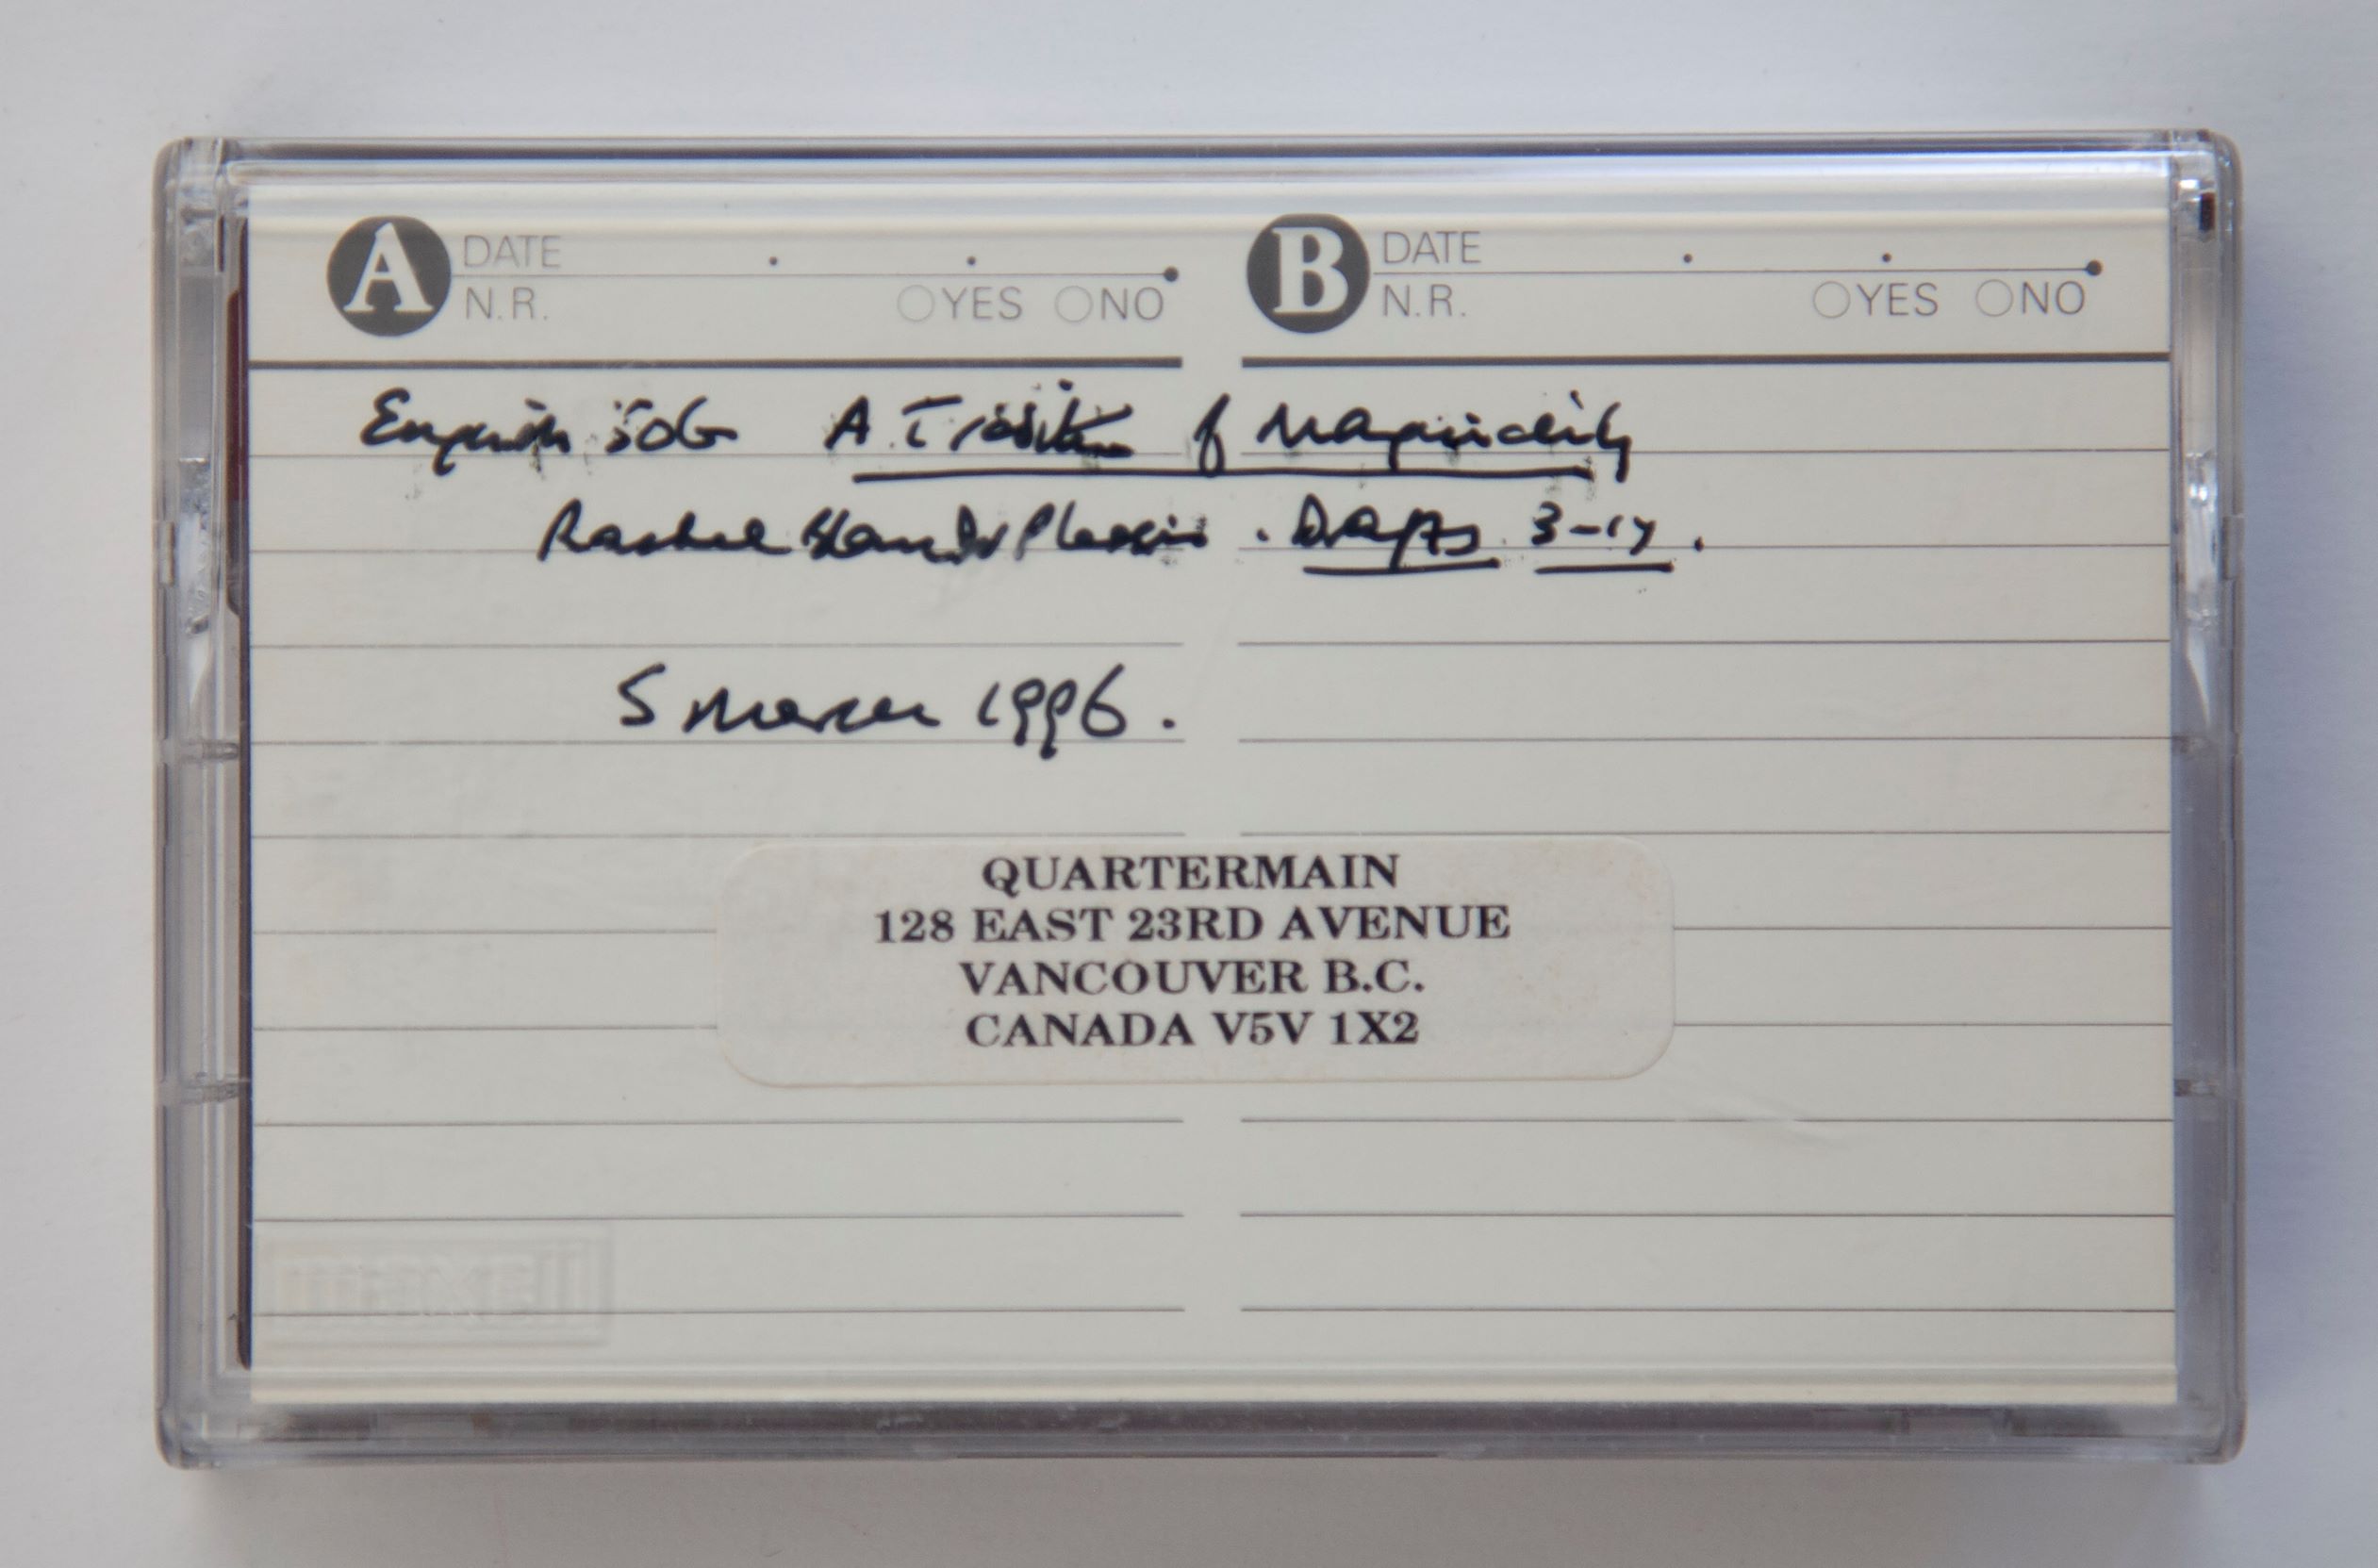 A DATE B DATE
N.R. YES NO N.R. YES NO
English 506 A Tradition of Marginality
Rachel Blau DuPlessis. Drafts 3-17.
5 March 1996.
QUARTERMAIN
128 EAST 23RD AVENUE
VANCOUVER B.C.
CANADA V5V 1X2
maxell